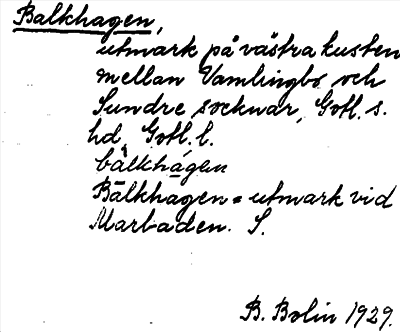 Balkhagen,
utmark på västra kusten
mellan Vamlingbo och
Sundre socknar, Gotl. s.
hd, Gotl. l.
bàlkhágen
Bālkhagen = utmark vid
Marbaden. S.
B. Bolin 1929.